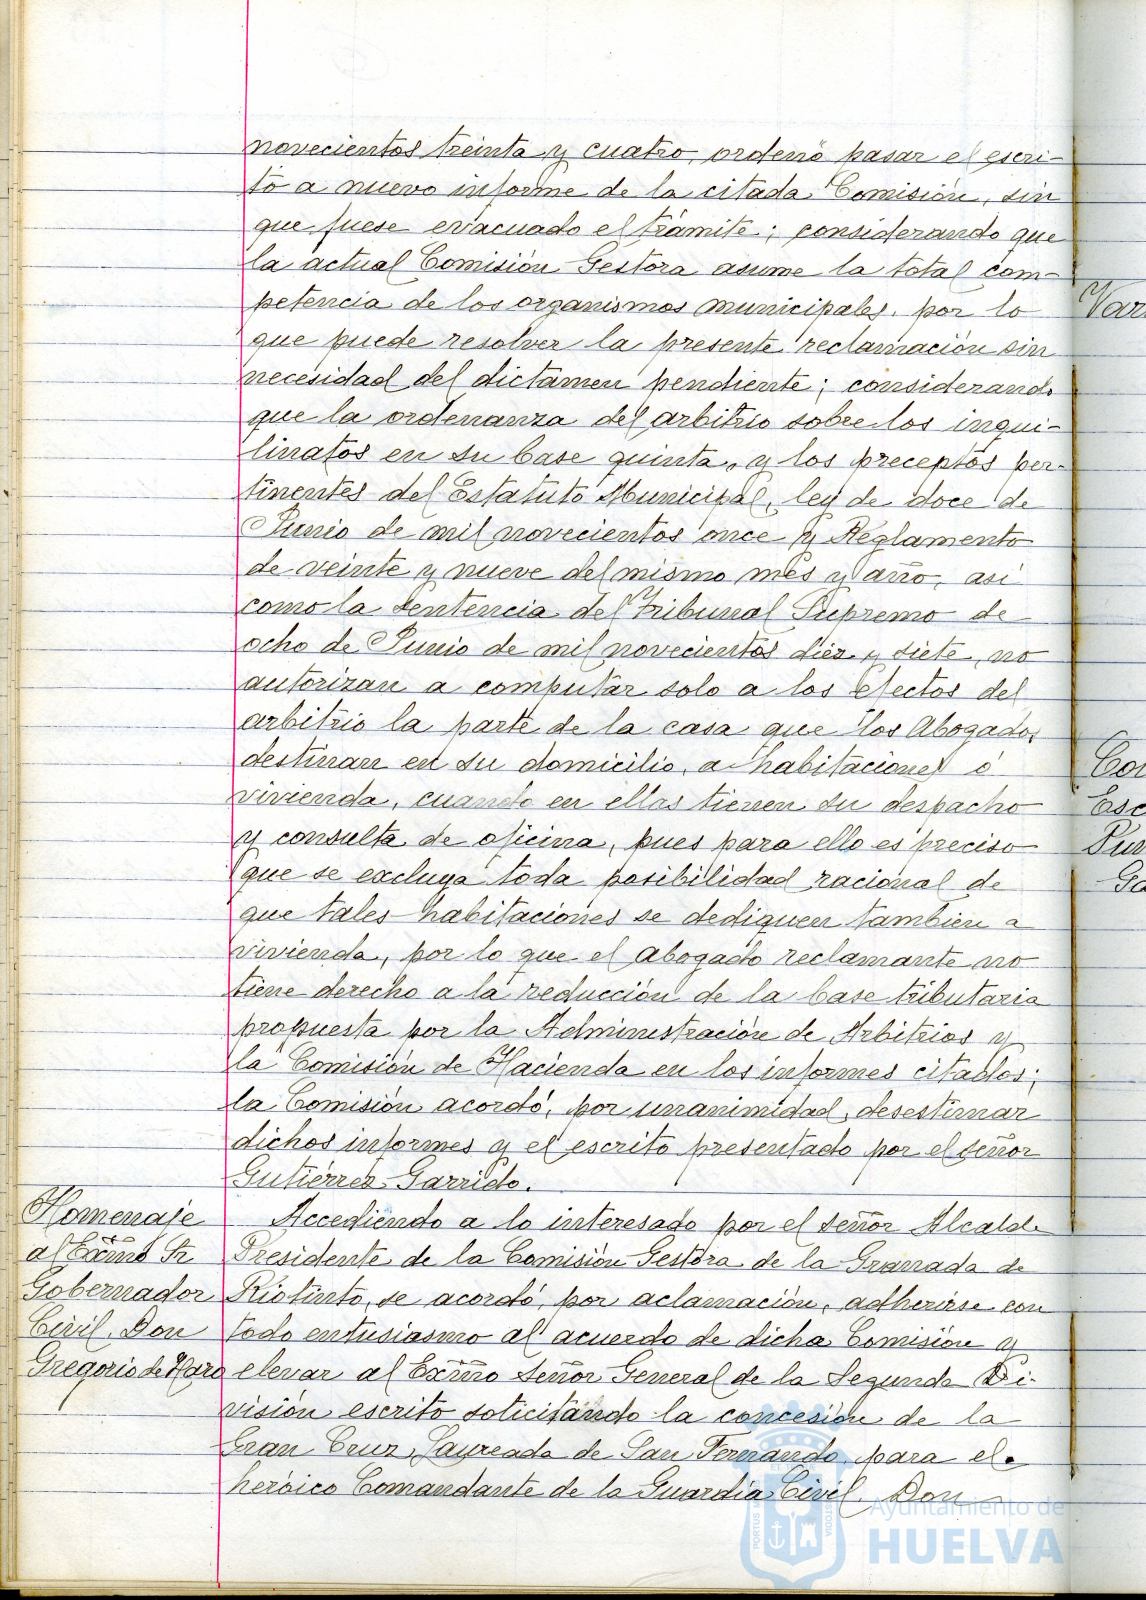 novecientos treinta y cuatro, ordenó pasar el escri-
to a nuevo informe de la citada Comisión, sin
que fuese evacuado el trámite; considerando que
la actual Comisión Gestora asume la total com-
petencia de los organismos municipales, por lo
que puede resolver la presente reclamación sin
necesidad del dictámen pendiente; considerando
que la ordenanza del arbitrio sobre los inqui-
linatos en su base quinta, y los preceptos per-
tinentes del Estatuto Municipal, ley de doce de
Junio de mil novecientos once y Reglamento
de veinte y nueve del mismo mes y año, así
como la Sentencia del Tribunal Supremo de
ocho de Junio de mil novecientos diez y siete, no
autorizan a computar solo a los efectos del
arbitrio la parte de la casa que los Abogados
destinan en su domicilio, a habitaciones ó
vivienda, cuando en ellas tienen su despacho
y consulta de oficina, pues para ello es preciso
que se excluya toda posibilidad racional de
que tales habitaciones se dediquen tambien a
vivienda, por lo que el Abogado reclamante no
tiene derecho a la reducción de la base tributaria
propuesta por la Administración de Arbitrios y
la Comisión de Hacienda en los informes citados;
la Comisión acordó, por unanimidad, desestimar
dichos informes y el escrito presentado por el señor
Gutiérrez Garrido.
Homenaje
al Excmo Sr
Gobernador
Civil, Don
Gregorio de Haro
Accediendo a lo interesado por el señor Alcalde
Presidente de la Comisión Gestora de la Granada de
Riotinto, se acordó, por aclamación, adherirse con
todo entusiasmo al acuerdo de dicha Comisión y
elevar al Excmo Señor General de la Segunda Di-
visión escrito solicitando la concesión de la
Gran Cruz Laureada de San Fernando para el
heróico Comandante de la Guardia Civil, Don
Ayuntamiento de
HUELVA